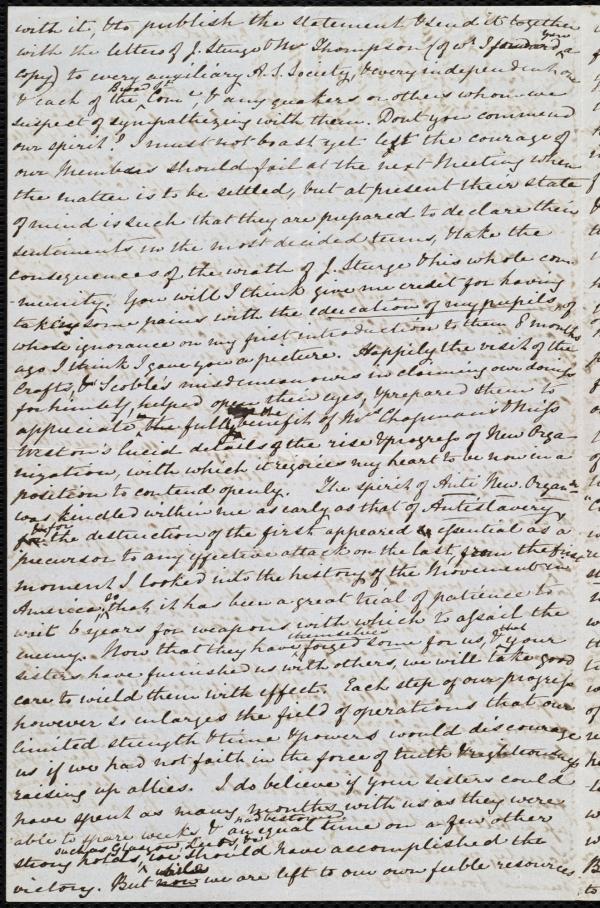 with it, & to publish the statement & send it together
with the letters of J. Sturge & Mr Thompson (of wh. I forward you a
copy) to every auxiliary A. S. Society, & every independent one
& each of the Broad St Come, & any quakers or others whom we
suspect of sympathizing with them. Dont you commend
our spirit? I must not boast yet lest the courage of
our Members should fail at the next Meeting when
the matter is to be settled, but at present their state
of mind is such that they are prepared to declare their
sentiments in the most decided terms, & take the
consequences of the wrath of J. Sturge & his whole com
-munity. You will I think give me credit for having
taken some pains with the education of my pupils, of
whose ignorance on my first introduction to them 8 months
ago I think I gave you a picture. Happily the visit of the
Crafts, & Scoble's misdemeanours in claiming our doings
for himself, helped open their eyes, & prepared them to
appreciate the full benefit of Mrs Chapman's & Miss
Weston's lucid details of the rise & progress of New Orga-
nization, with which it rejoices my heart to be now in a
position to contend openly. The spirit of Anti New Organn
was kindled within me as early as that of Antislavery,
for the destruction of the first appeared essential as a
precursor to any effective attack on the last, from the first
moment I looked into the history of the Movement in
America, so that it has been a great trial of patience to
wait 6 years for weapons with which to assail the
enemy. Now that they have themselves forged some for us, & that your
sisters have furnished us with others, we will take good
care to wield them with effect. Each step of our progress
however so enlarges the field of operations that our
limited strength & time & powers would discourage
us if we had not faith in the force of truth & righteousness
raising up allies. I do believe if your sisters could
have spent as many months with us as they were
able to spare weeks, & had bestowed an equal time on a few other
strong holds, such as Glasgow, Leeds, &c we should have accomplished the
victory. But while we are left to our own feeble resources